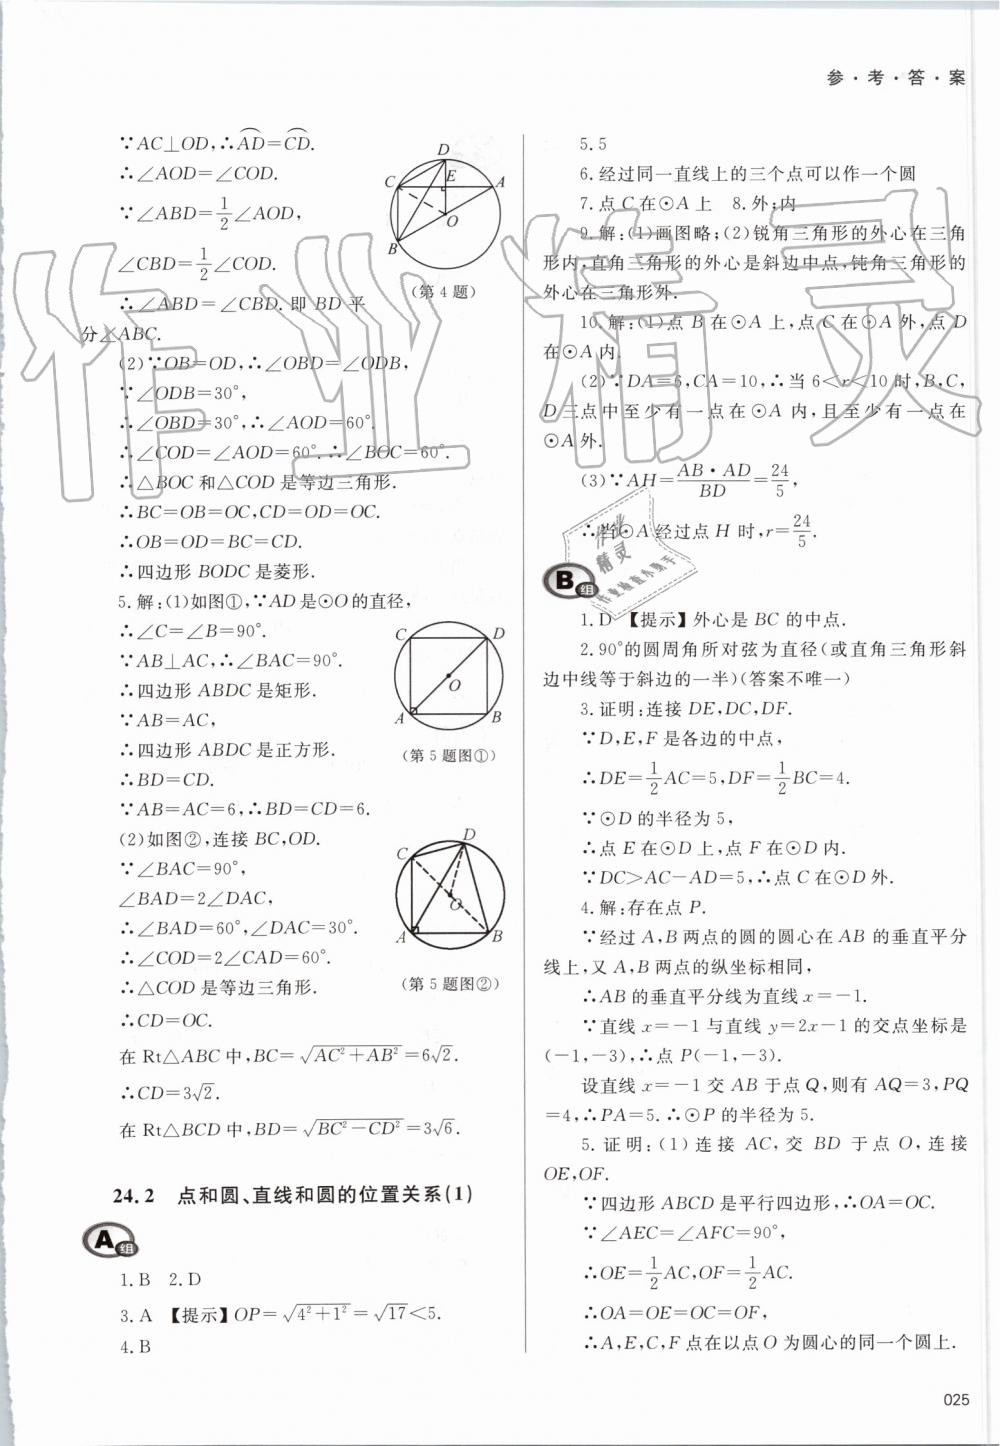 参·考·答·案
∵AC⊥OD,∴AD=CD.
∴∠AOD=∠COD.
∵∠ABD=1/2∠AOD,
∠CBD=1/2∠COD.
∴∠ABD=∠CBD.即 BD 平
分∠ABC.
(2)∵OB=OD,∴∠OBD=∠ODB,
∵∠ODB=30°,
∴∠OBD=30°,∴∠AOD=60°.
∴∠COD=∠AOD=60°.∴∠BOC=60°.
∴△BOC 和△COD 是等边三角形.
∴BC=OB=OC,CD=OD=OC.
∴OB=OD=BC=CD.
∴四边形 BODC 是菱形.
D
C
E
A
O
B
(第 4 题)
5.解:(1)如图①,∵AD是⊙O的直径,
∴∠C=∠B=90°.
∵AB⊥AC,∴∠BAC=90°.
∴四边形 ABDC 是矩形.
∵AB=AC,
∴四边形 ABDC 是正方形.
∴BD=CD.
∵AB=AC=6,∴BD=CD=6.
C
D
O
A
B
(第 5 题图①)
(2)如图②,连接 BC,OD.
∵∠BAC=90°,
∠BAD=2∠DAC,
∴∠BAD=60°,∠DAC=30°.
∴∠COD=2∠CAD=60°.
∴△COD 是等边三角形.
∴CD=OC.
在 Rt△ABC 中,BC=√(AC²+AB²)=6√2.
∴CD=3√2.
在 Rt△BCD 中,BD=√(BC²−CD²)=3√6.
D
C
O
A
B
(第 5 题图②)
24.2 点和圆、直线和圆的位置关系(1)
A组
1.B 2.D
3.A 【提示】OP=√(4²+1²)=√17<5.
4.B
5.5
6.经过同一直线上的三个点可以作一个圆
7.点 C 在⊙A 上 8.外;内
9.解:(1)画图略;(2)锐角三角形的外心在三角
形内,直角三角形的外心是斜边中点,钝角三角形的
外心在三角形外.
10.解:(1)点 B 在⊙A 上,点 C 在⊙A 外,点 D
在⊙A 内.
(2)∵DA=6,CA=10,∴当 6<r<10 时,B,C,
D 三点中至少有一点在⊙A 内,且至少有一点在
⊙A 外.
(3)∵AH=AB·AD/BD=24/5,
∴当⊙A 经过点 H 时,r=24/5.
B组
1.D 【提示】外心是 BC 的中点.
2.90°的圆周角所对弦为直径(或直角三角形斜
边中线等于斜边的一半)(答案不唯一)
3.证明:连接 DE,DC,DF.
∵D,E,F 是各边的中点,
∴DE=1/2AC=5,DF=1/2BC=4.
∵⊙D 的半径为 5,
∴点 E 在⊙D 上,点 F 在⊙D 内.
∵DC>AC−AD=5,∴点 C 在⊙D 外.
4.解:存在点 P.
∵经过 A,B 两点的圆的圆心在 AB 的垂直平分
线上,又 A,B 两点的纵坐标相同,
∴AB 的垂直平分线为直线 x=−1.
∵直线 x=−1 与直线 y=2x−1 的交点坐标是
(−1,−3),∴点 P(−1,−3).
设直线 x=−1 交 AB 于点 Q,则有 AQ=3,PQ
=4,∴PA=5.∴⊙P 的半径为 5.
5.证明:(1)连接 AC,交 BD 于点 O,连接
OE,OF.
∵四边形 ABCD 是平行四边形,∴OA=OC.
∵∠AEC=∠AFC=90°,
∴OE=1/2AC,OF=1/2AC.
∴OA=OE=OC=OF,
∴A,E,C,F 点在以点 O 为圆心的同一个圆上.
025
作业精灵
作业
精灵